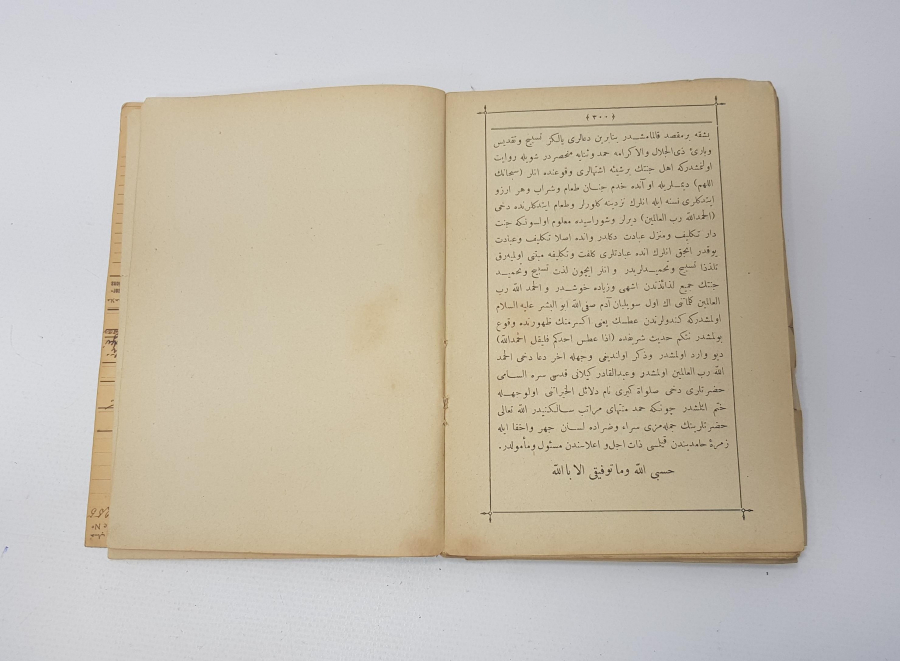 ﴿٢٠٠﴾
بشقه بر مقصد قالمامشـدر بناءً برين دعالرى يالكز تسبيح وتقديس
وبارئ ذى الجلال والاكرامه حمد وثنايه منحصردر شويله روايت
اولنمشدركه اهل جنتك برشيئه اشتهالرى وقوعنده انلر (سبحانك
اللهم) ديمـلريله او آنده خدم جنـان طعام وشراب وهر ارزو
ايتدكلرى نسنه ايله انلرك نزدينه كلورلر وطعام ايتدكلرنده دخى
(الحمدلله رب العالمين) ديرلر وشوراسيده معلوم اولـسونكه جنت
دار تـكليف ومنزل عبادت دكلدر وانده اصلا تـكليف وعبادت
يوقدر انجق انلرك انده عبادتلرى كلفت وتكليفه مبتنى اولميه‌رق
تلذذا تسبيح وتحميـدلريدر و انلر ايچون لذت تسبيح وتحميـد
جنتك جميع لذائذندن اشهى وزياده خوشـدر و الحمد لله رب
العالمين كلماتنى اك اول سويليان آدم صفى الله ابو البشر عليه السلام
اولمشدركه كندولرندن عطسك يعنى اكسرمنك ظهورنده وقوع
بولمشدر نتكم حديث شريفده (اذا عطس احدكم فليقل الحمدلله)
ديو وارد اولمشدر وذكر اولنديغى وجهله اخر دعا دخى الحمد
لله رب العالمين اولمشدر وعبدالقادر كيلانى قدسى سره السـامى
حضرتلرى دخى صلواة كبرى نام دلائل الخيراتنى اولوجهـله
ختم ايتلشدر چونكه حمد منتهاى مراتب سـالكنيدر الله تعالى
حضرتلرينك جمله‌مزى سراء وضراده لسـان جهر واخفا ايله
زمرهٔ حامديندن قيلمـسى ذات اجل و اعلاسـندن مسئول ومأمولدر.
حسبى الله وما توفيقى الا بالله